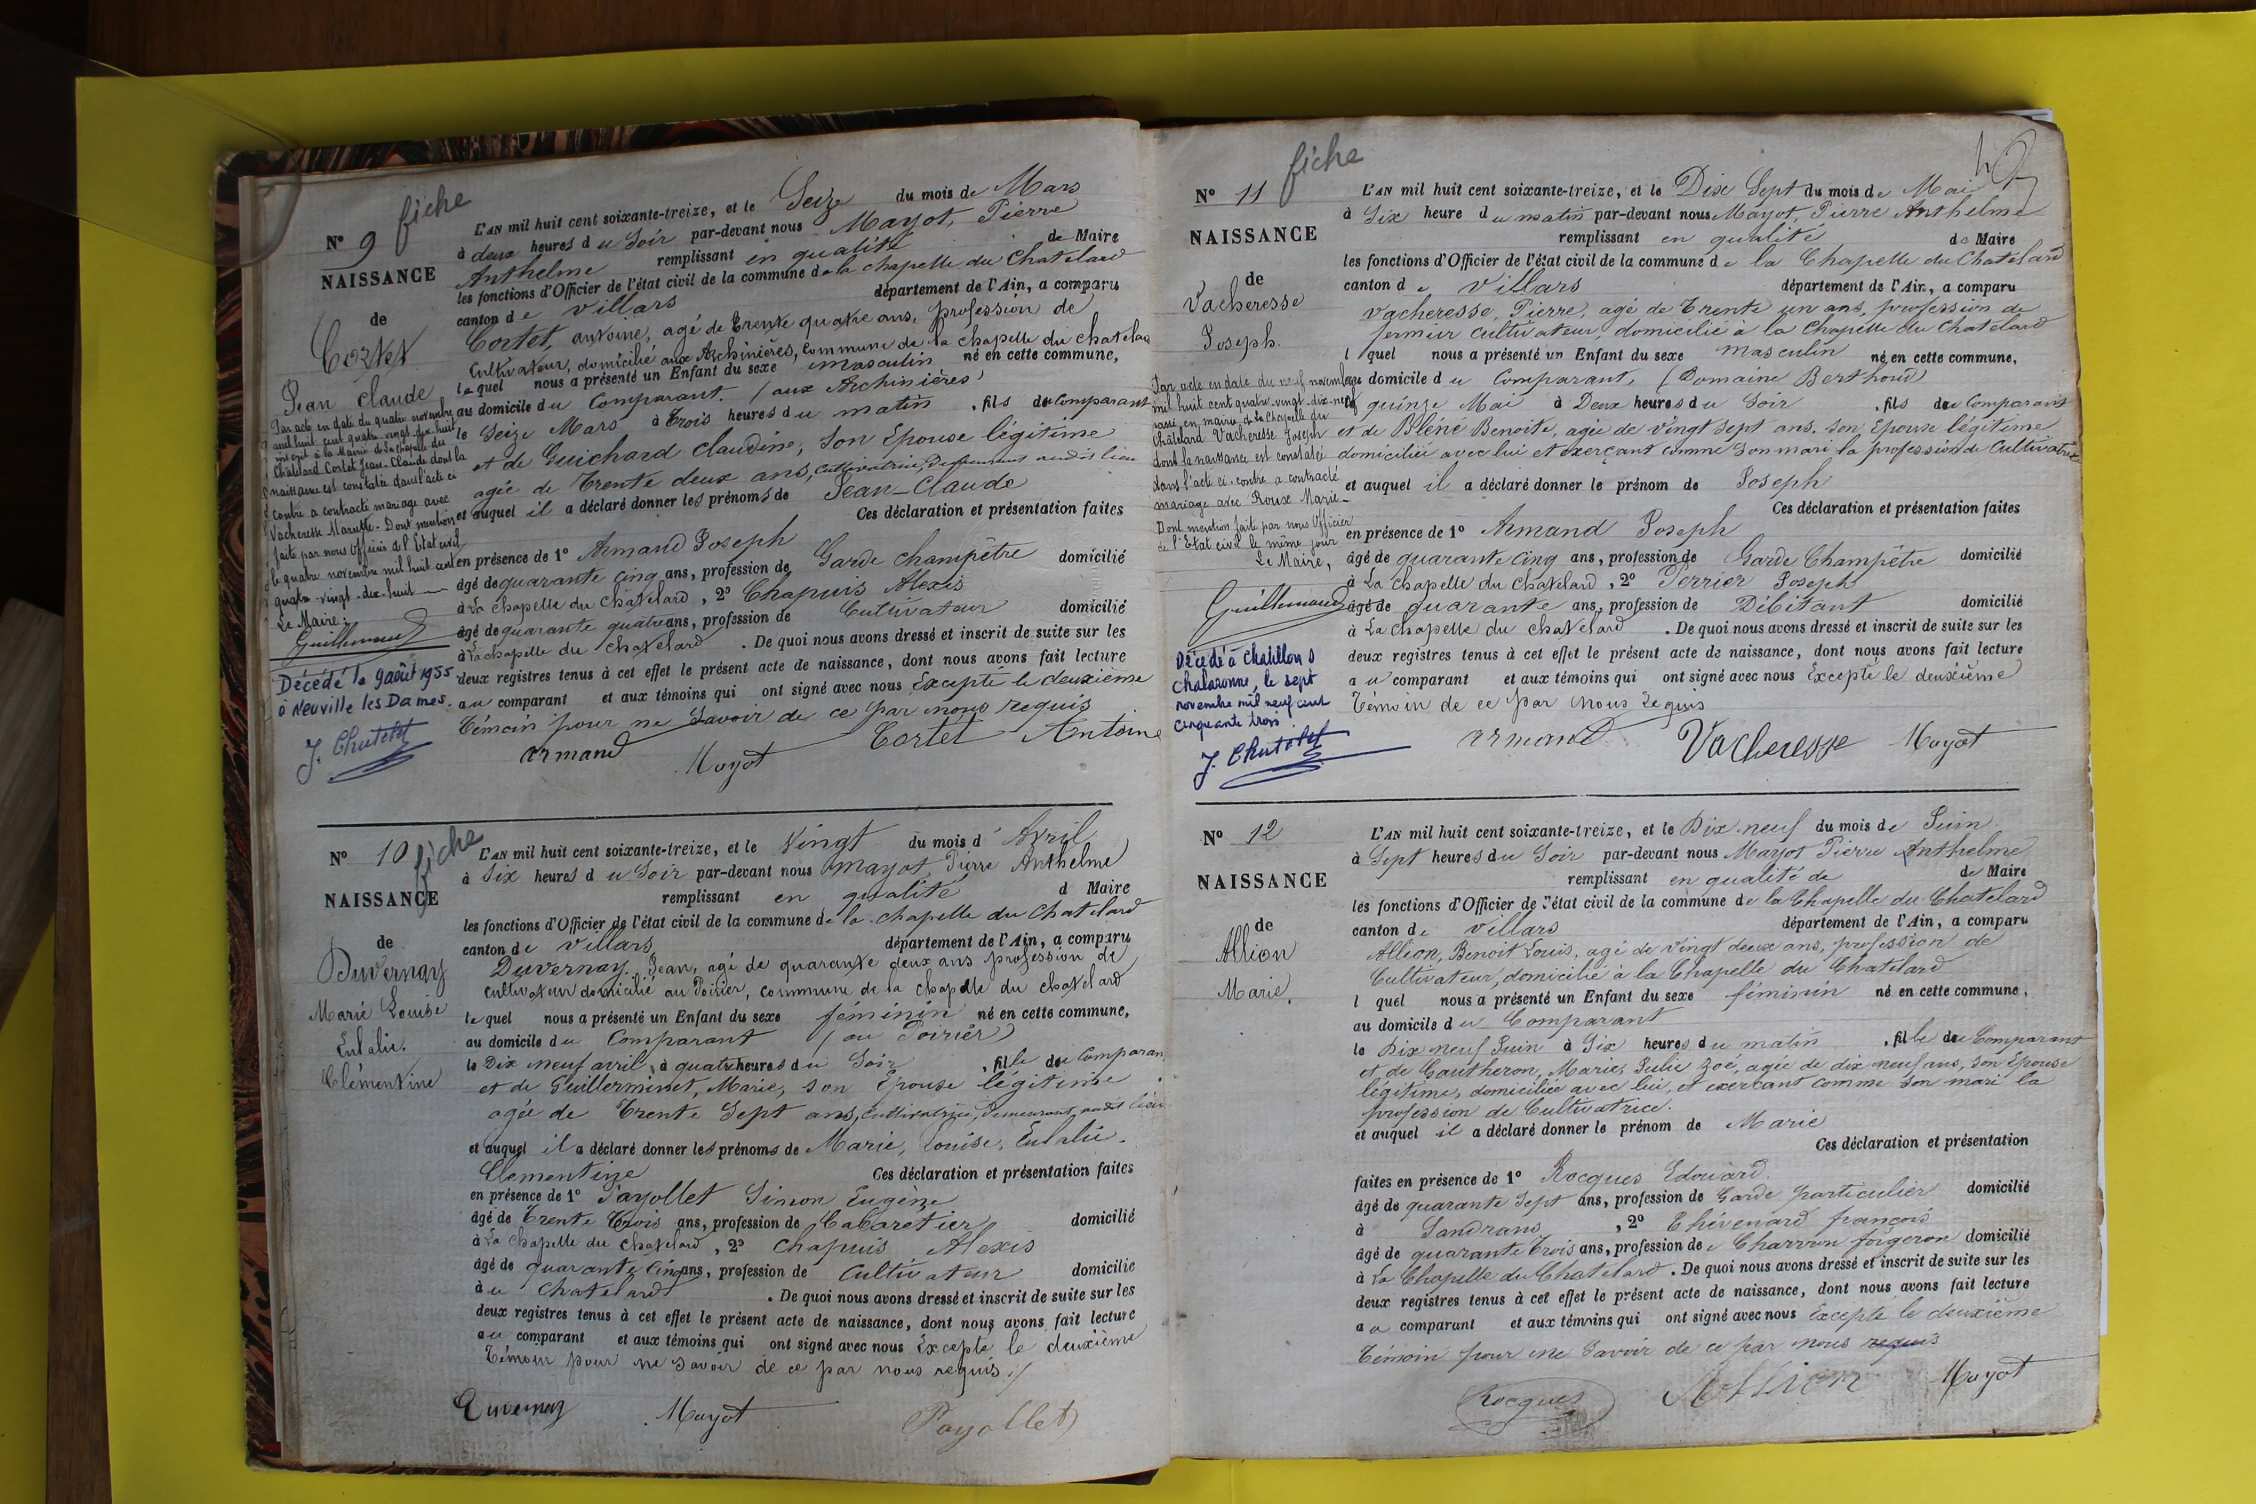 fiche
N° 9
NAISSANCE
de
Cortet
Jean Claude
Par acte en date du quatre novembre
mil huit cent quatre-vingt-dix-huit
à la Mairie de La Chapelle du
Châtelard Cortet Jean-Claude dont la
naissance est constatée dans l'acte ci
contre a contracté mariage avec
Vacheresse Mariette - Dont mention
faite par nous Officier de l'Etat civil
le quatre novembre mil huit cent
quatre-vingt-dix-huit
Le Maire :
Guillemaud
Décédé le 9 août 1955
à Neuville les Dames.
J. Chatelet
L'AN mil huit cent soixante-treize, et le Seize du mois de Mars
à deux heures du Soir par-devant nous Mayot, Pierre
Anthelme remplissant en qualité de Maire
les fonctions d'Officier de l'état civil de la commune de la chapelle du Chatelard
canton de villars département de l'Ain, a comparu
Cortet, antoine, agé de trente quatre ans, profession de
Cultivateur, domicilié aux Archinières, commune de la chapelle du chatelard
lequel nous a présenté un Enfant du sexe masculin né en cette commune,
au domicile du Comparant. (aux Archinières)
le Seize Mars à trois heures du matin, fils du Comparant
et de Guichard claudine, Son Epouse légitime
agée de trente deux ans, cultivatrice, demeurant audit lieu
et auquel il a déclaré donner les prénoms de Jean-Claude
Ces déclaration et présentation faites
en présence de 1° Armand Joseph
âgé de quarante cinq ans, profession de Garde champêtre domicilié
à La chapelle du châtelard, 2° Chapuis Alexis
âgé de quarante quatre ans, profession de Cultivateur domicilié
à La chapelle du chatelard. De quoi nous avons dressé et inscrit de suite sur les
deux registres tenus à cet effet le présent acte de naissance, dont nous avons fait lecture
au comparant et aux témoins qui ont signé avec nous Excepté le deuxième
témoin pour ne Savoir de ce par nous requis
armand Mayot Cortet Antoine
N° 10 fiche
NAISSANCE
de
Duvernay
Marie Louise
Eulalie.
Clémentine
L'AN mil huit cent soixante-treize, et le vingt du mois d'Avril
à Six heures du Soir par-devant nous mayot, Pierre Anthelme
remplissant en qualité d Maire
les fonctions d'Officier de l'état civil de la commune de la chapelle du Chatelard
canton de villars département de l'Ain, a comparu
Duvernay, Jean, agé de quarante deux ans profession de
cultivateur domicilié au Poirier, commune de la chapelle du chatelard
lequel nous a présenté un Enfant du sexe féminin né en cette commune,
au domicile du Comparant (au Poirier)
le Dix neuf avril, à quatre heures du Soir, fille du Comparant
et de Guillerminet, Marie, son Epouse légitime
agée de trente Sept ans, cultivatrice, demeurant audit lieu
et auquel il a déclaré donner les prénoms de Marie, Louise, Eulalie.
Clementine Ces déclaration et présentation faites
en présence de 1° Payollet Simon Eugène
âgé de trente trois ans, profession de Cabaretier domicilié
à La chapelle du chatelard, 2° Chapuis Alexis
âgé de quarante cinq ans, profession de Cultivateur domicilié
à u Chatelard. De quoi nous avons dressé et inscrit de suite sur les
deux registres tenus à cet effet le présent acte de naissance, dont nous avons fait lecture
au comparant et aux témoins qui ont signé avec nous Excepté le deuxième
témoin pour ne savoir de ce par nous requis ./
Duvernay Mayot Payollet
N° 11 fiche
NAISSANCE
de
Vacheresse
Joseph.
Par acte en date du neuf novembre
mil huit cent quatre vingt-dix-neuf
passé en mairie de La Chapelle du
Châtelard Vacheresse Joseph
dont la naissance est constatée
dans l'acte ci-contre a contracté
mariage avec Roux Marie-
Dont mention faite par nous Officier
de l'Etat civil le même jour
Le Maire,
Guillemaud
Décédé à Chatillon s
Chalaronne, le sept
novembre mil neuf cent
cinquante trois
J. Chatelet
L'AN mil huit cent soixante-treize, et le Dix Sept du mois de Mai
à Six heure du matin par-devant nous Mayot, Pierre Anthelme
remplissant en qualité de Maire
les fonctions d'Officier de l'état civil de la commune de la Chapelle du Chatelard
canton de Villars département de l'Ain, a comparu
vacheresse, Pierre, agé de trente un ans, profession de
fermier cultivateur, domicilié à la Chapelle du Chatelard
l quel nous a présenté un Enfant du sexe masculin né en cette commune,
au domicile du Comparant, (Domaine Berthoud)
le quinze Mai à Deux heures du Soir, fils du Comparant
et de Blénc Benoite, agée de vingt Sept ans. Son Epouse légitime
domiciliée avec lui et exerçant comme Son mari la profession de Cultivatrice
et auquel il a déclaré donner le prénom de Joseph
Ces déclaration et présentation faites
en présence de 1° Armand Joseph
âgé de quarante Cinq ans, profession de Garde Champêtre domicilié
à La Chapelle du Chatelard, 2° Perrier Joseph
âgé de quarante ans, profession de Débitant domicilié
à La chapelle du chatelard. De quoi nous avons dressé et inscrit de suite sur les
deux registres tenus à cet effet le présent acte de naissance, dont nous avons fait lecture
au comparant et aux témoins qui ont signé avec nous Excepté le deuxième
Témoin de ce par nous requis
armand Vacheresse Mayot
N° 12
NAISSANCE
de
Allion
Marie.
L'AN mil huit cent soixante-treize, et le Dix-neuf du mois de Juin
à Sept heures du Soir par-devant nous Mayot Pierre Anthelme
remplissant en qualité de de Maire
les fonctions d'Officier de l'état civil de la commune de la Chapelle du Chatelard
canton de villars département de l'Ain, a comparu
Allion, Benoit Louis, agé de vingt deux ans, profession de
Cultivateur, domicilié à la Chapelle du Chatelard
l quel nous a présenté un Enfant du sexe féminin né en cette commune,
au domicile du Comparant
le Dix neuf Juin à Six heures du matin, fille du Comparant
et de Gautheron, Marie, Julie Zoé, agée de dix neuf ans, Son Epouse
légitime, domiciliée avec lui, et exerçant comme Son mari la
profession de Cultivatrice.
et auquel il a déclaré donner le prénom de Marie
Ces déclaration et présentation
faites en présence de 1° Rocques Edouard.
âgé de quarante Sept ans, profession de Garde particulier domicilié
à Sandrans, 2° Thévenard françois
âgé de quarante trois ans, profession de Charron forgeron domicilié
à La Chapelle du Chatelard. De quoi nous avons dressé et inscrit de suite sur les
deux registres tenus à cet effet le présent acte de naissance, dont nous avons fait lecture
au comparant et aux témoins qui ont signé avec nous Excepté le deuxième
témoin pour ne Savoir de ce par nous requis
Rocques Allion Mayot